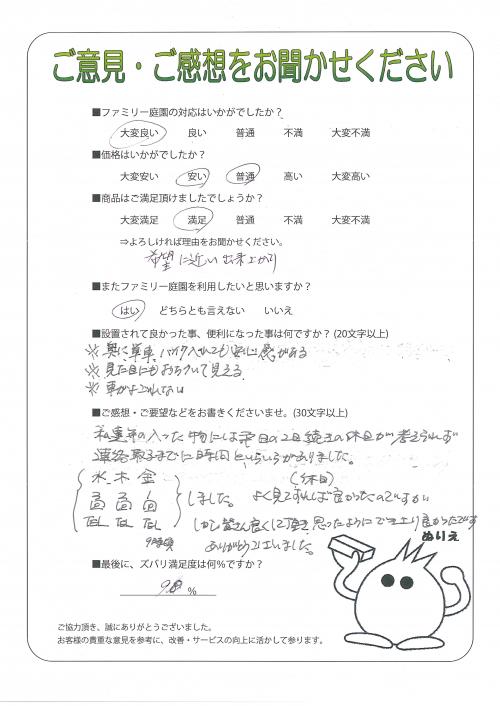 ご意見・ご感想をお聞かせください
■ファミリー庭園の対応はいかがでしたか？
大変良い 良い 普通 不満 大変不満
■価格はいかがでしたか？
大変安い 安い 普通 高い 大変高い
■商品はご満足頂けましたでしょうか？
大変満足 満足 普通 不満 大変不満
⇒よろしければ理由をお聞かせください。
希望に近い出来上がり
■またファミリー庭園を利用したいと思いますか？
はい どちらとも言えない いいえ
■設置されて良かった事、便利になった事は何ですか？(20文字以上)
※奥に単車、バイク入れても安心感がある
※見た目にもおちついて見える
※車がよごれない
■ご感想・ご要望などをお書きくださいませ。(30文字以上)
私達年の入った物には平日の2日続きの休日が考えられず
連絡取るまでに時間といらいらがありました。
水 木 金 (休日)
しました。 よく見てすれば良かったのですが
TEL TEL TEL しかし皆さん良くして頂き思ったようにでき上り良かったです
ありがとうございました。
ぬりえ
■最後に、ズバリ満足度は何％ですか？
98 %
ご協力頂き、誠にありがとうございました。
お客様の貴重な意見を参考に、改善・サービスの向上に活かして参ります。